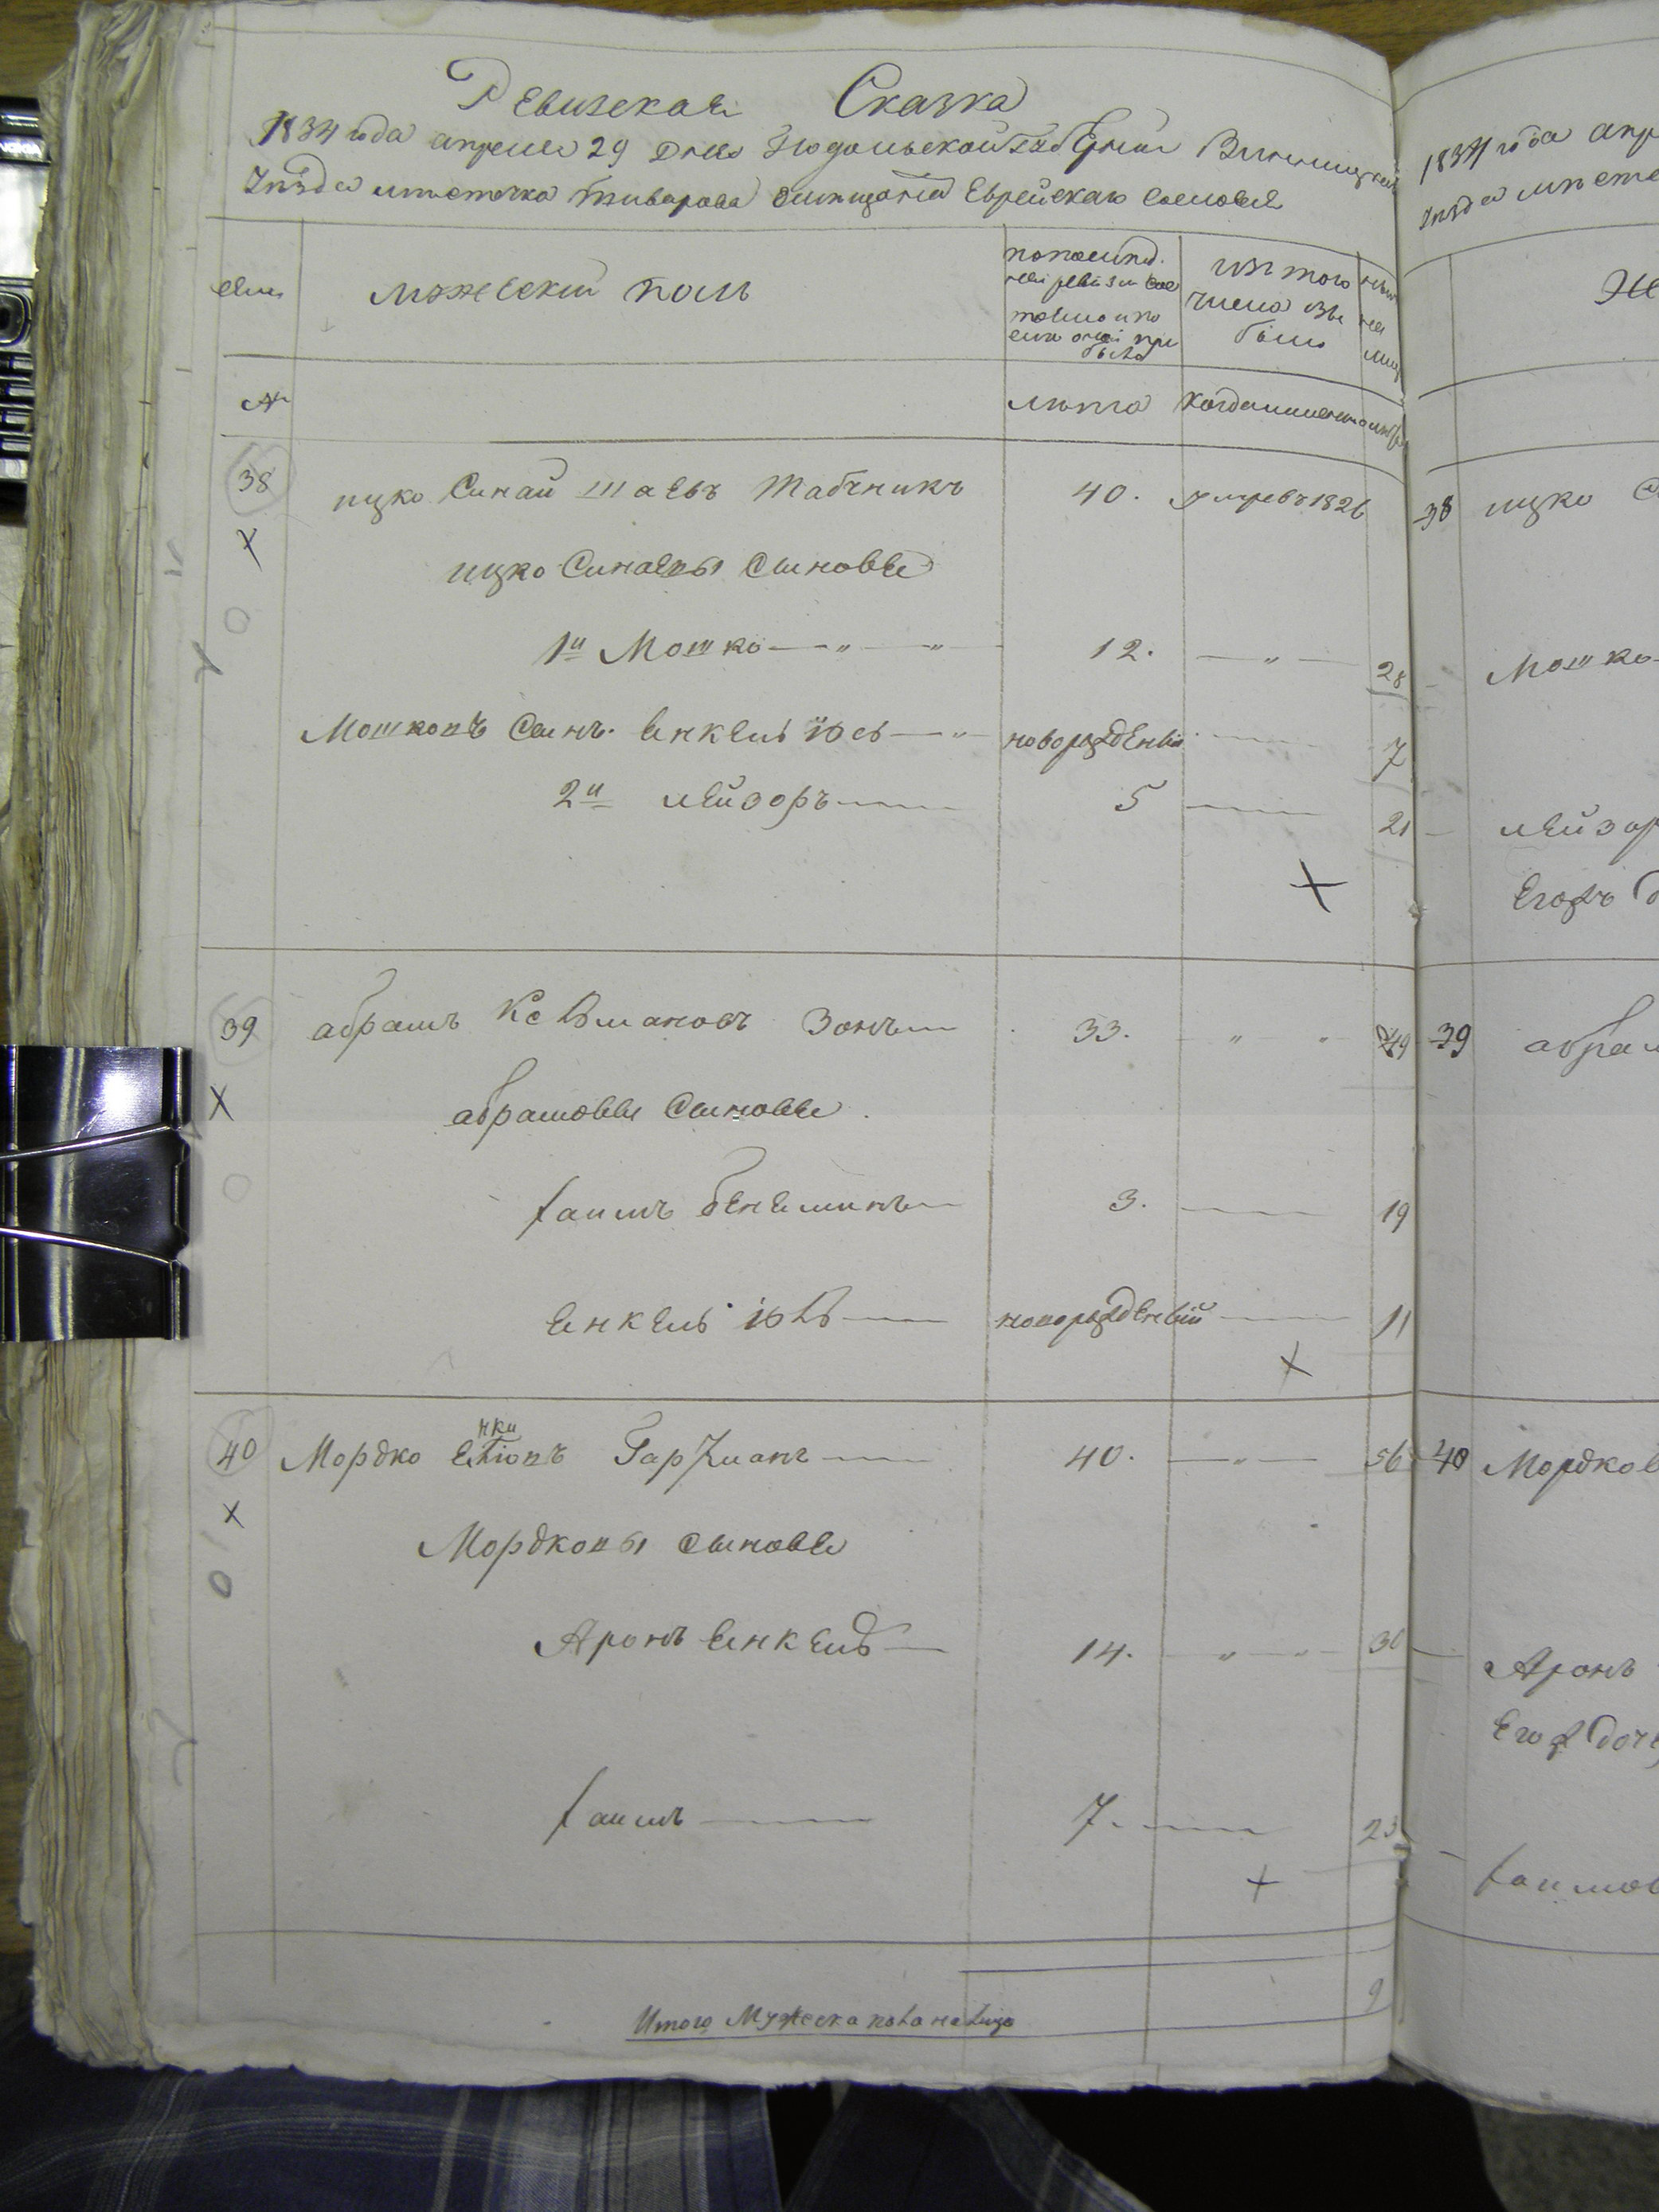 Ревизская Сказка
1834 года апреля 29 дня Подольской Губернии Винницкаго
уезда местечка Тиврова о мещанах Еврейскаго сословия
мужеский пол
по последней ревизии состояло и после оной прибыло
из того числа выбыло
ныне на лицо
№
лета
когда именно
лета
38 ицко Синай Шаевъ Табачникъ 40. умре въ 1826
ицко Синаевы Сыновья
1й Мошко 12. 28
Мошковъ Сынъ Енкель Іось новорожденый 7
2й лейзоръ 5 21
39 абрамъ Кельмановъ Зонъ 33. 49
абрамовы Сыновья
хаимъ бениаминъ 3. 19
Енкель новорожденый 11
40 Мордко Гархманъ 40. 56
Мордковы сыновья
Аронъ Енкель 14. 30
хаимъ 7. 23
Итого Мужеска пола налицо 9
1834 года апр
уезда месте
38 ицко
Мошко
лейзор
Егоръ
39 абрам
40 Мордков
Аронъ
Его дочь
хаимов